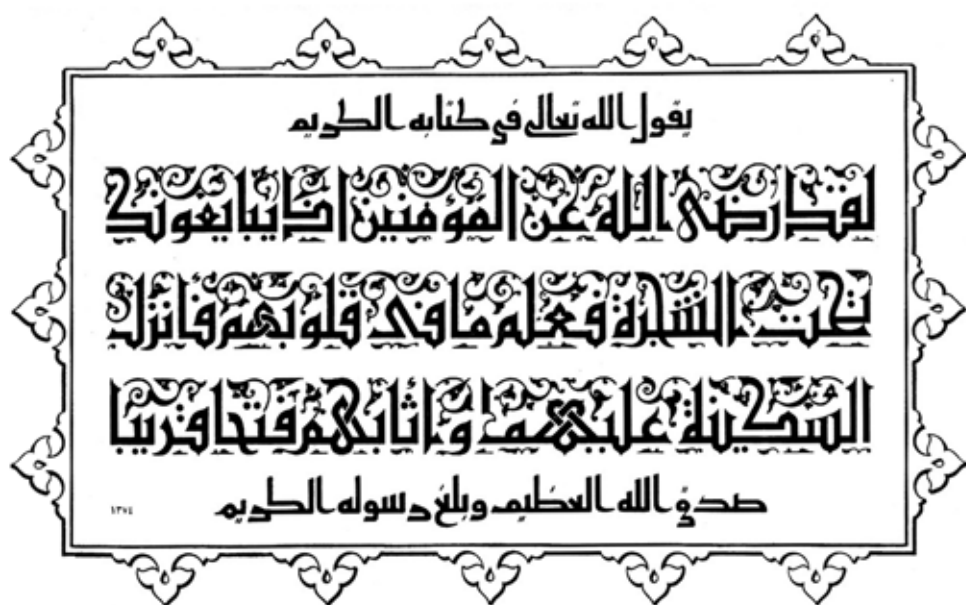 يقول الله تعالى في كتابه الكريم
لقد رضى الله عن المؤمنين اذ يبايعونك
تحت الشجرة فعلم ما فى قلوبهم فانزل
السكينة عليهم واثابهم فتحا قريبا
صدق الله العظيم وبلغ رسوله الكريم
١٣٧٤